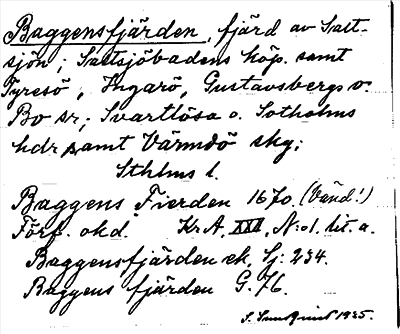 Baggensfjärden, fjärd av Salt-
sjön; Saltsjöbadens köp. samt
Tyresö, Ingarö, Gustavsbergs o.
Bo sr; Svartlösa o. Sotholms
hdr samt Värmdö skg;
Sthlms l.
Baggens Fierden 1670. (Vänd!)
Förf. okd. Kr.A. XXI, N:o1. lit. a.
Baggensfjärden ek, Sj: 234.
Baggens fjärden G. 76.
1935.